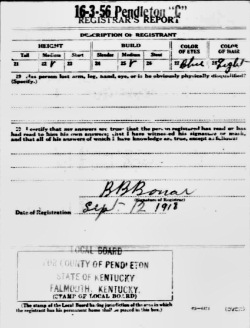 16-3-56 Pendleton "C"
REGISTRAR'S REPORT
DESCRIPTION OF REGISTRANT
HEIGHT BUILD COLOR OF EYES COLOR OF HAIR
Tall Medium Short Slender Medium Stout
21 22 23 24 25 26 27 Blue 28 Light
29 Has person lost arm, leg, hand, eye, or is he obviously physically disqualified?
(Specify.)
30 I certify that my answers are true; that the person registered has read or has
had read to him his own answers; that I have witnessed his signature or mark,
and that all of his answers of which I have knowledge are true, except as follows:
B B Bonar
(Signature of Registrar)
Date of Registration Sept 12 1918
LOCAL BOARD
THE COUNTY OF PENDLETON
STATE OF KENTUCKY
FALMOUTH, KENTUCKY.
(STAMP OF LOCAL BOARD)
(The stamp of the Local Board having jurisdiction of the area in which
the registrant has his permanent home shall be placed in this box.)